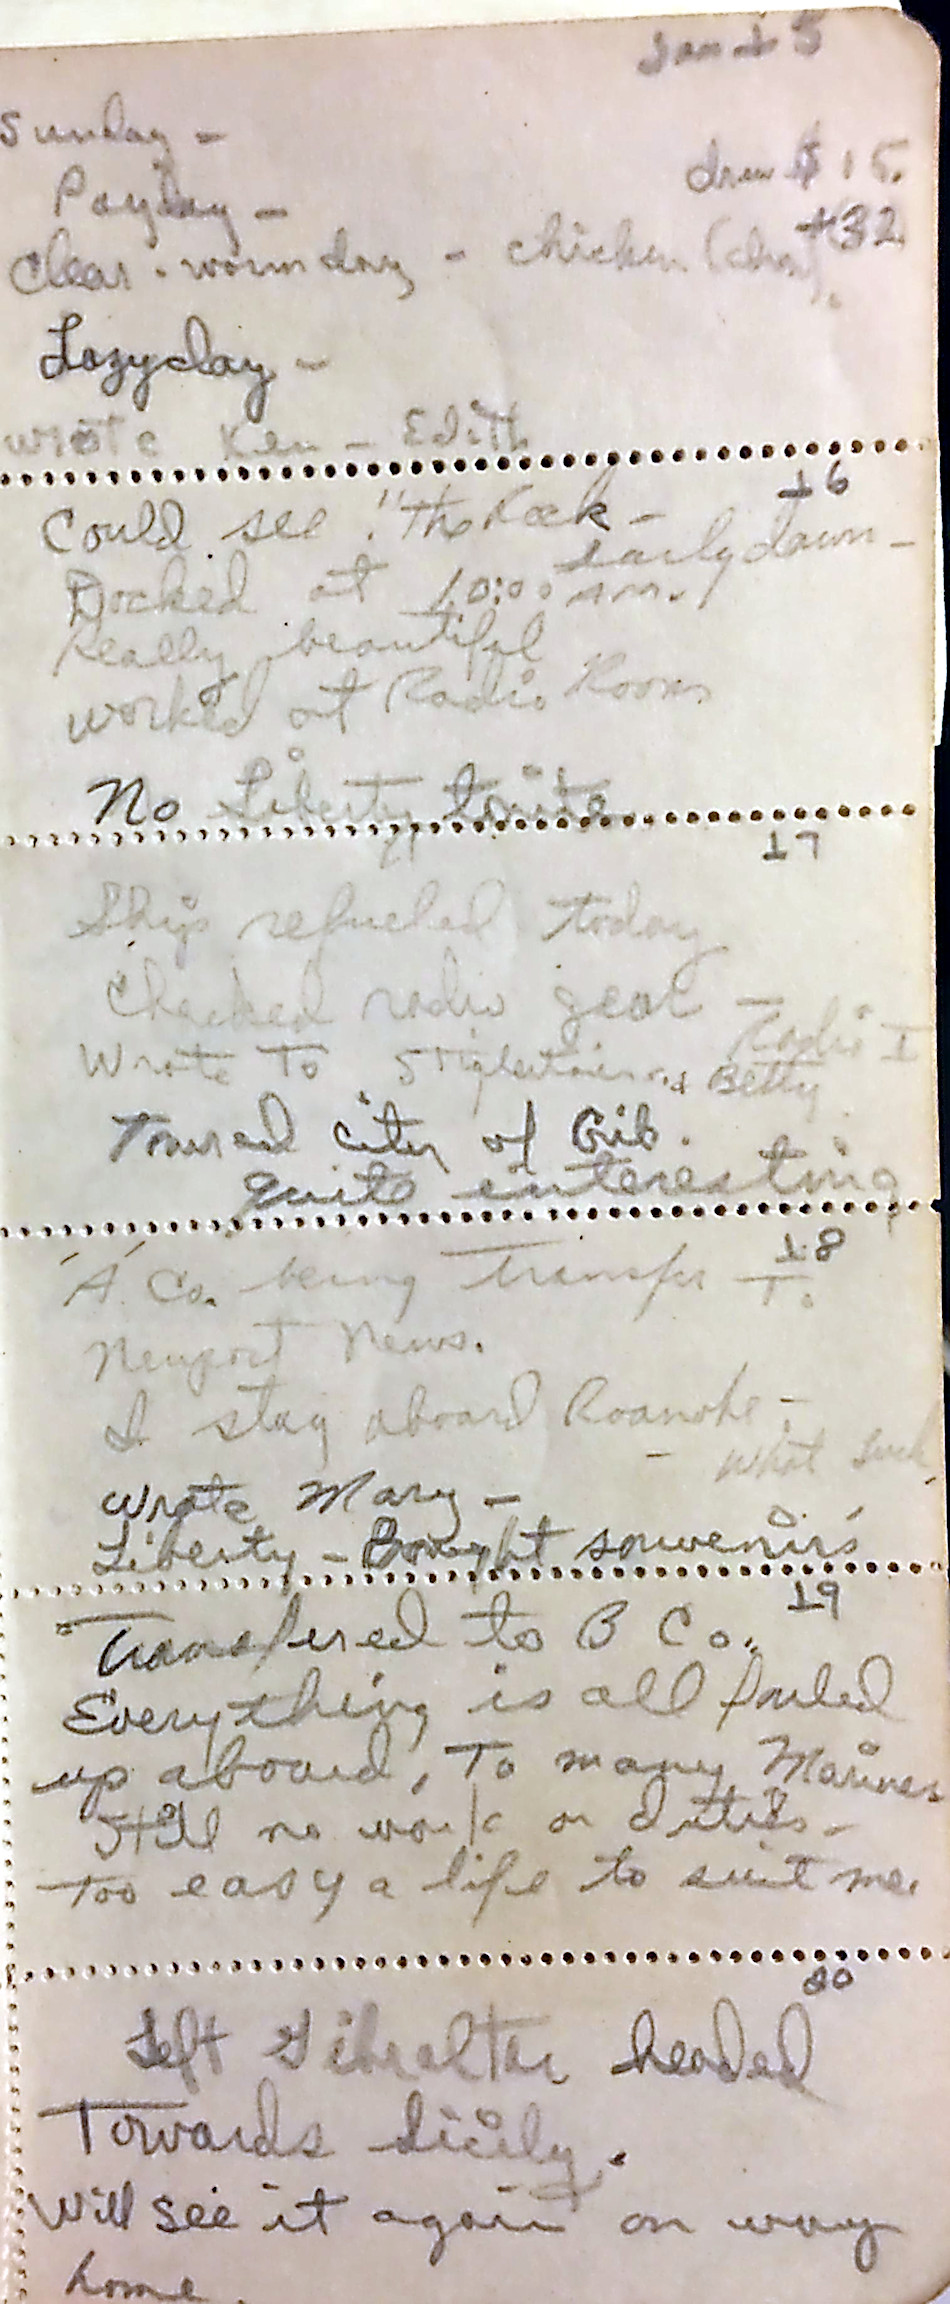 Jan 15
Sunday -
Payday - drew $15.
+32
Clear - warm day - chicken (chow).
Lazyday -
wrote Ken - Edith
16
Could see "The Rock -
early dawn -
Docked at 10:00 am.
Really beautiful
worked at Radio Room
No Liberty tonite
17
Ship refueled today
Checked radio gear -
Radio I
Wrote To and Betty
Toured city of Gib.
quite interesting
18
'A' Co. being transfer To
Newport News.
I stay aboard Roanoke -
- what luck
Wrote Mary -
Liberty - Bought souvenirs
19
Transfered to B Co.
Everything is all fouled
up aboard, To many Marines
Still no work or duties -
Too easy a life to suit me.
20
Left Gibralter headed
Towards Sicily.
Will see it again on way
home.